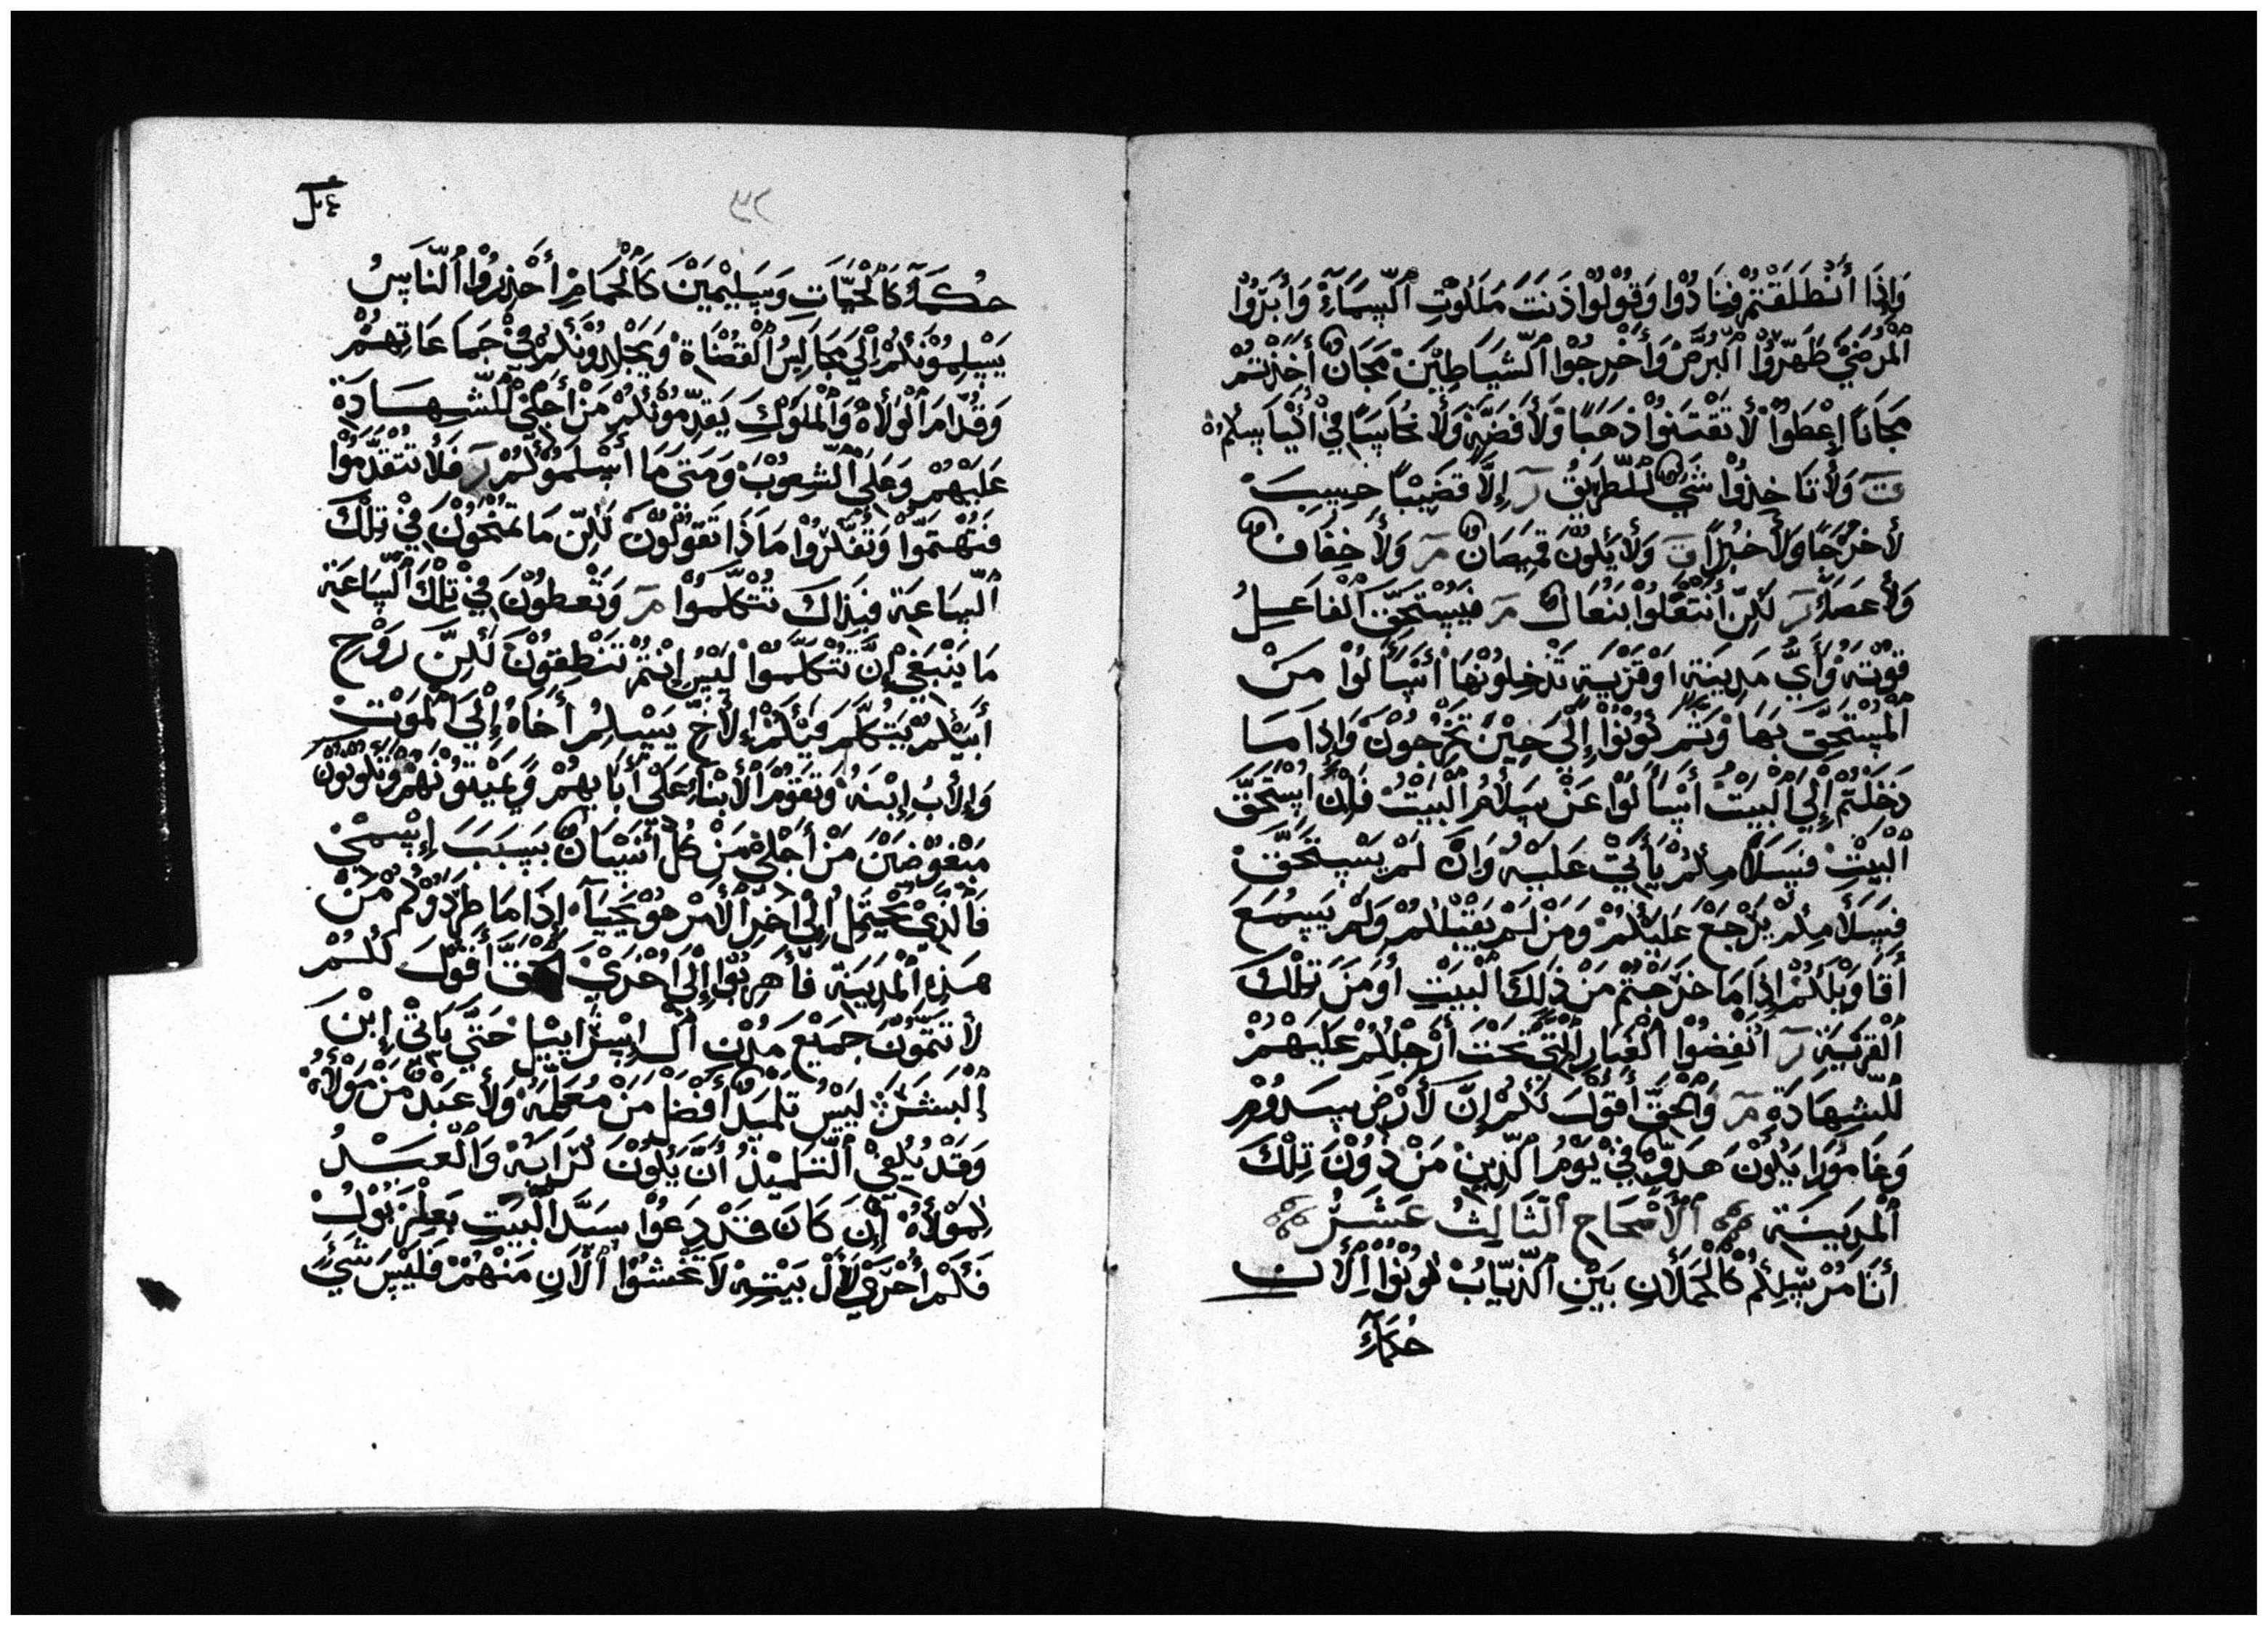 وَإِذَا أَنْطَلَقْتُمْ فَنَادُوْا وَقُوْلُوْا دَنَتْ مَلَكُوْتِ اُلسَّمَاءِ وَأَبَرُوْا
اُلْمَرْضَيْ طَهِّرُوْا اُلْبُرَّصْ وَأَخْرِجُوْا اُلشَّيَاطِيْنَ مَجَانً أَخَذْتُمْ
مَجَانًا اعْطَوْا لَأ تَقْتَنَوْا ذَهَبًا وَلَأ فَضَّةٍ وَلَأ نُحَاسًا فِيْ أَكْيَاسِكُمْ
وَلَأ تَاخِذُوْا شَيْ لُلطَّرِيْقُ إِلَّا قَضِيْبًا حسِبب
لَأ خُرْجًا وَلَأ خُبْزًا وَلَأ يَكُوْنَ قَمِيْصَانً وَلَأ خِفَافً
وَلَأ عَصَاً لَكِنّ أنْتَعْلُوْا بنْعَالً فَيَسْتَحَقّ اُلْفَاعِلُ
قُوْتَهُ وَأَيّ مَدِيْنَةٍ اوْ قَرْيَةٍ تَدْخِلُوْنَهَا أَسْأَلُوْا مَنْ
اُلْمُسْتَحِقّ بِهَا وَثَمّ كُوْنُوْا إِلَيَ حِيْنَ تَخْرُجُوْنَ وَإِذَا مَا
دَخَلْتُمْ إِلَيَ اُلْبَيْتْ أَسْأَلُوْا عَنْ سَلَأمُ اُلْبَيْتُ فَإِنً اُسْتَحَقّ
اُلْبَيْتْ فَسَلَأمِكُمْ يَأَتِيْ عَلَيْهِ وَانْ لَمْ يَسْتَحَقّ
فَسَلَأمِكُمْ يَرْجَعْ عَلَيْكُمْ وَمَنْ لَمْ يَقْبَلْكُمْ وَلَمْ يَسْمَعْ
أَقَاوَيْلَكُمْ اِذَا مَا خَرَجْتُمْ مَنْ ذَلِكَ اُلْبَيْتِ أَوْ مَنْ تَلْكَ
اُلْقَرْيَةٍ اُنْفِضُوْا اُلْغُبَارِ اُلَّتِيْ تَحْتَ أَرْجُلِكُمْ عَلَيْهُمْ
لُلشِهَادَةٍ وَاُلْحَقّ أَقُوْلَ لَكُمْ إِنّ لَأرْضْ سَدُوْمِ
وَغَامُوْرَا يَكُوْنَ هَدَوٌّ فِيْ يَوْمُ اُلذِّيْنَ مَنْ دُوْنَ تِلْكَ
اُلْمَدِيْنَةٍ اُلْأَصْحَاحِ اُلثَّالِثُ عَشَرْ
أَنَا مُرْسِلَكُمْ كَاُلْحُمْلَأنِ بَيْنِ اُلذِّيَابُ كُوْنُوْا اُلْأن
حُكَمَأَ
٣٢
حُكَمَأَ كَاُلْحَيَّاتِ وَسَلِيْمِيْنَ كَاُلْحَمَامِ أَحْذِرُوْا اُلنَّاسُ
يَسْلِمُوْنَكُمْ اُلَيَ مَجَالِسُ اُلْقُضَاةِ وَيَجْلِدُوْنَكُمْ فِيْ جَمَاعَاتِهُمْ
وَقُدَّامَ اُلْوُلَأةِ وَاُلْمُلُوْكِ يَقَدِّمُوْنَكُمْ مَنْ أَجْلِيْ لُلشِّهَادَةْ
عَلَيْهُمْ وَعَلَيَ اُلشِّعُوْبَ وَمَتَيَ مَا أسْلَمُوْكُمْ فَلَأ تَتَقَدَّمُوْا
فَتَهْتَمُّوْا وَتُفَكِّرُوْا مَا ذَا تَقُوْلُوْنَ لَكِنّ مَا تُمْنَحُوْنَ فِيْ تِلْكَ
اُلسَّاعَةٍ فَبذَاكَ تُتَكَلَّمُوْا وَتُعْطَوْنَ فِيْ تِلْكَ اُلسَّاعَةٍ
مَا يَنْبَغِيْ إنَّ تُتَكَلَّمُوْا لَيْسَ إنْتُمْ تَنْطِقُوْنَ لَكِنَّ رَوْحِ
أَبَيْكُمْ يَتَكَلَّمَ فَيْكُمْ اِلأَخِ يَسْلِمُ أَخَاهُ إِلَيَ اُلْمَوْتْ
وَاِلأَبُ إِبْنَهُ وَتَقُوْمُ اُلأَبْنَاءُ عَلَيْ أَبَايهُمْ وَيَمْيَتُوْنَهُمْ وَتَكُوْنُوْنَ
مَبْغُوْضَيْنَ مَنْ أَجْلِيْ مَنْ كُلّ أَنْسَانً بَسَبَبَ إِسْمِيْ
فَاَلَّذِيْ يَحْتَمِلُ إِلَيْ اَخِرَ اُلأمْرْ هُوْ يَحْيَآءُ اِذَا مَا طَرَدُوْكُمْ مْنْ
هَذِهِ اُلْمَدِيْنَةٍ فَأَهِرِبُوْا إِلَيَ اُخْرَيْ اُلحقَّ أَقُوْلَ لَكُمْ
لَأ تَتَمّوْنَ جَمِيْعْ مُدْنِ أَلْ إِسْرَايِيْلِ حَتَّيْ يَاتِيْ إِبْنَ
اِلْبَشَرْ لَيْسْ تَلْمِيذٌ أَفْضَلْ مَنْ مُعَلِّمَهُ وَلَأ عَبْدٌ مَنْ مَوْلَأهُ
وَقَدْ يُكْفِيْ اُلتَّلْمِيْذُ أَنَّ يَكُوْنَ كَرَابِهْ وَاُلْعَبْدُ
لِمَوْلَأهُ إِنَ كَانَ قَدْ دَعَوْا سَيَّد اُلْبَيْتِ بَعِلْزَبُوْلُ
فَكَمْ أُحْرَيْ لِأَلْ بَيْتِهْ لَأ تَخْشُوْا اُلْأَنِ مَنْهُمْ فَلَيْسَ شَيْ